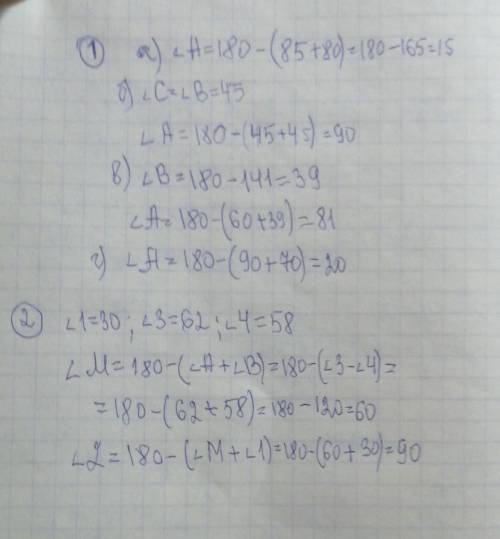 1 а) ∠A=180-(85+80)=180-165=15
б) ∠C=∠B=45
∠A=180-(45+45)=90
в) ∠B=180-141=39
∠A=180-(60+39)=81
г) ∠A=180-(90+70)=20
2 ∠1=30; ∠3=62; ∠4=58
∠M=180-(∠A+∠B)=180-(∠3-∠4)=
=180-(62+58)=180-120=60
∠2=180-(∠M+∠1)=180-(60+30)=90